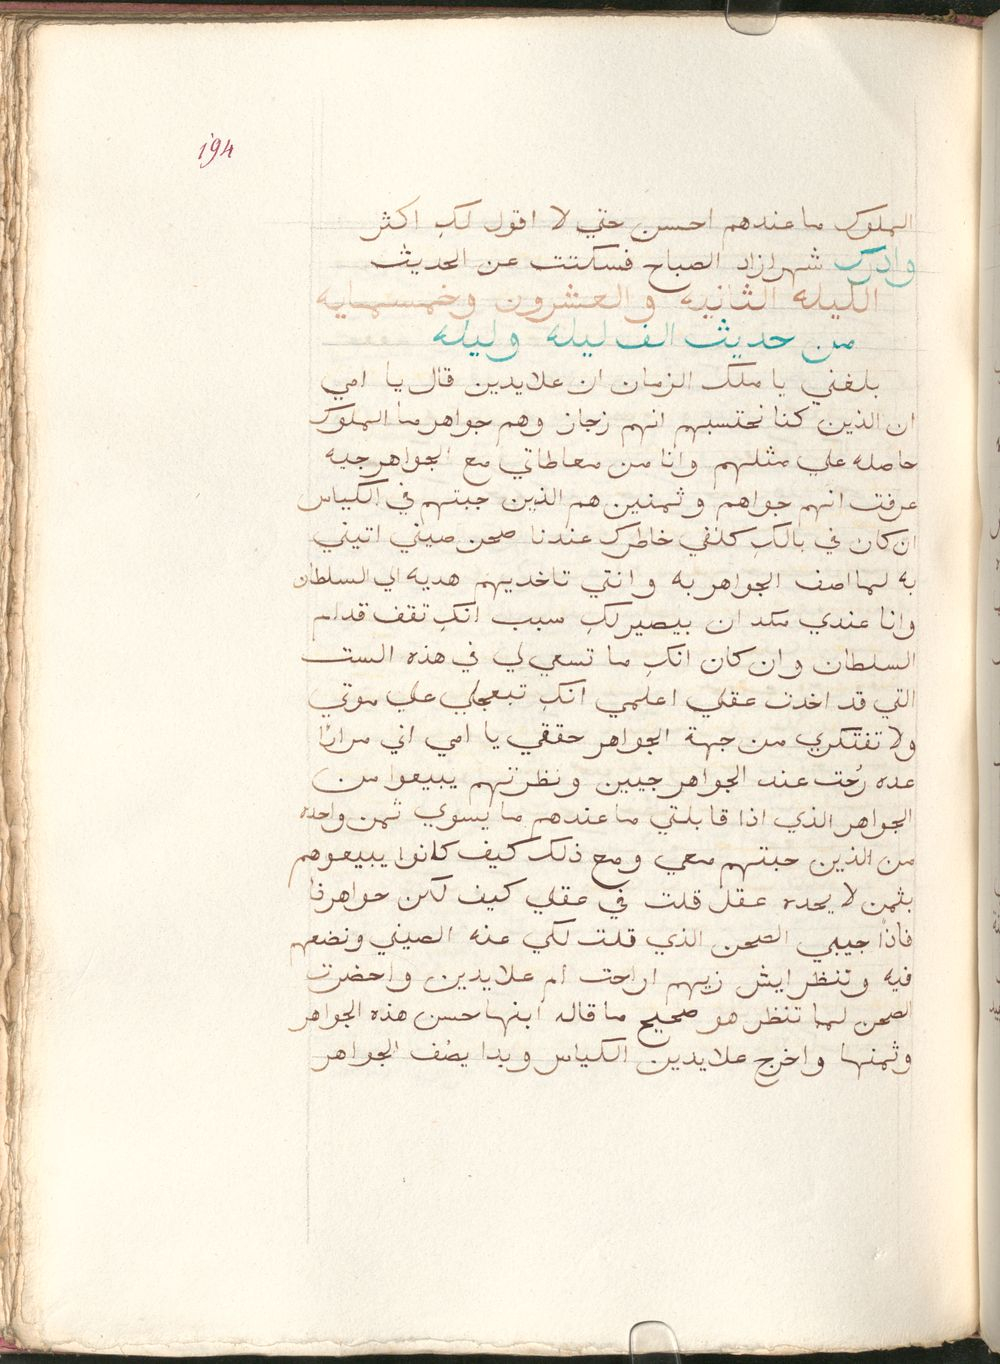 194
الملوك ما عندهم احسن حتي لا اقول لكِ اكثر
وادرك شهرازاد الصباح فسكتت عن الحديث
الليله الثانيه والعشرون وخمسمايه
من حديث الف ليله وليله
بلغني يا ملك الزمان ان علايدين قال يا امي
ان الذين كنا نحتسبهم انهم زجاز وهم جواهر ما الملوك
حاصله علي مثلهم وانا من معاطاتي مع الجواهرجيه
عرفت انهم جواهم وثمنين هم الذين جبتهم في الكياس
ان كان في بالك كلفي خاطرك عندنا صحن صيني اتيني
به لما اصف الجواهر به وانتي تاخديهم هديه الي السلطان
وانا عندي مكد ان بيصير لكِ سبب انكِ تقف قدام
السلطان وان كان انكِ ما تسعي لي في هذه الست
التي قد اخدت عقلي اعلمي انكِ تبعجلي علي موتي
ولا تفتكري من جهة الجواهر حققي يا امي اني مرارًا
عده رُحت عند الجواهرجيين ونظرتهم يبيعوا من
الجواهر الذي اذا قابلتي ما عندهم ما يسوي ثمن واحده
من الذين جبتهم معي ومع ذلك كيف كانوا يبيعوهم
بثمن لا يحده عقل قلت في عقلي كيف لكن جواهرنا
فاذًا جيبي الصحن الذي قلت لكي عنه الصيني ونضعهم
فيه وننظر ايش زيهم اراحت ام علايدين واحضرت
الصحن لما تنظر هو صحيح ما قاله ابنها حسن هذه الجواهر
وثمنها واخرج علايدين الكياس وبدا يصُف الجواهر